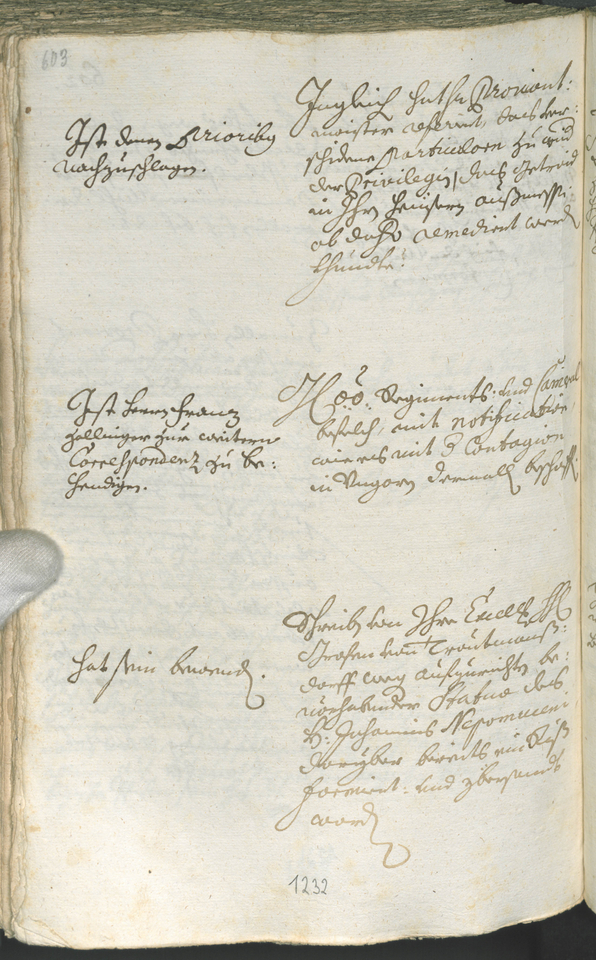 603
Ist denen Prioribus
nachzuschlagen.
Ingleich hat H. Proviant:
meister referirt, daß ver:
schidene Particulare zu wid
der Privilegien, daß Getraid
in Ihren Heüsern außmessen
ob dises remedirt werden
khundte.
Ist Herrn Franz
Zallinger zur weitern
Correspondenz zu be:
hendigen.
Regiments: und Cameral
befelch, mit notification,
wie es mit der Contagion
in Ungarn dermalß beschaffen
Hat sein bewenden.
Schreiben von Ihro Excell. H.
Grafen von Trautmanß:
dorff weg aufzurichten be:
vorhabender Statua des
H: Johannis Nepomuceni,
darüber bereits ein Riß
formiert: und übersendt
word
1232